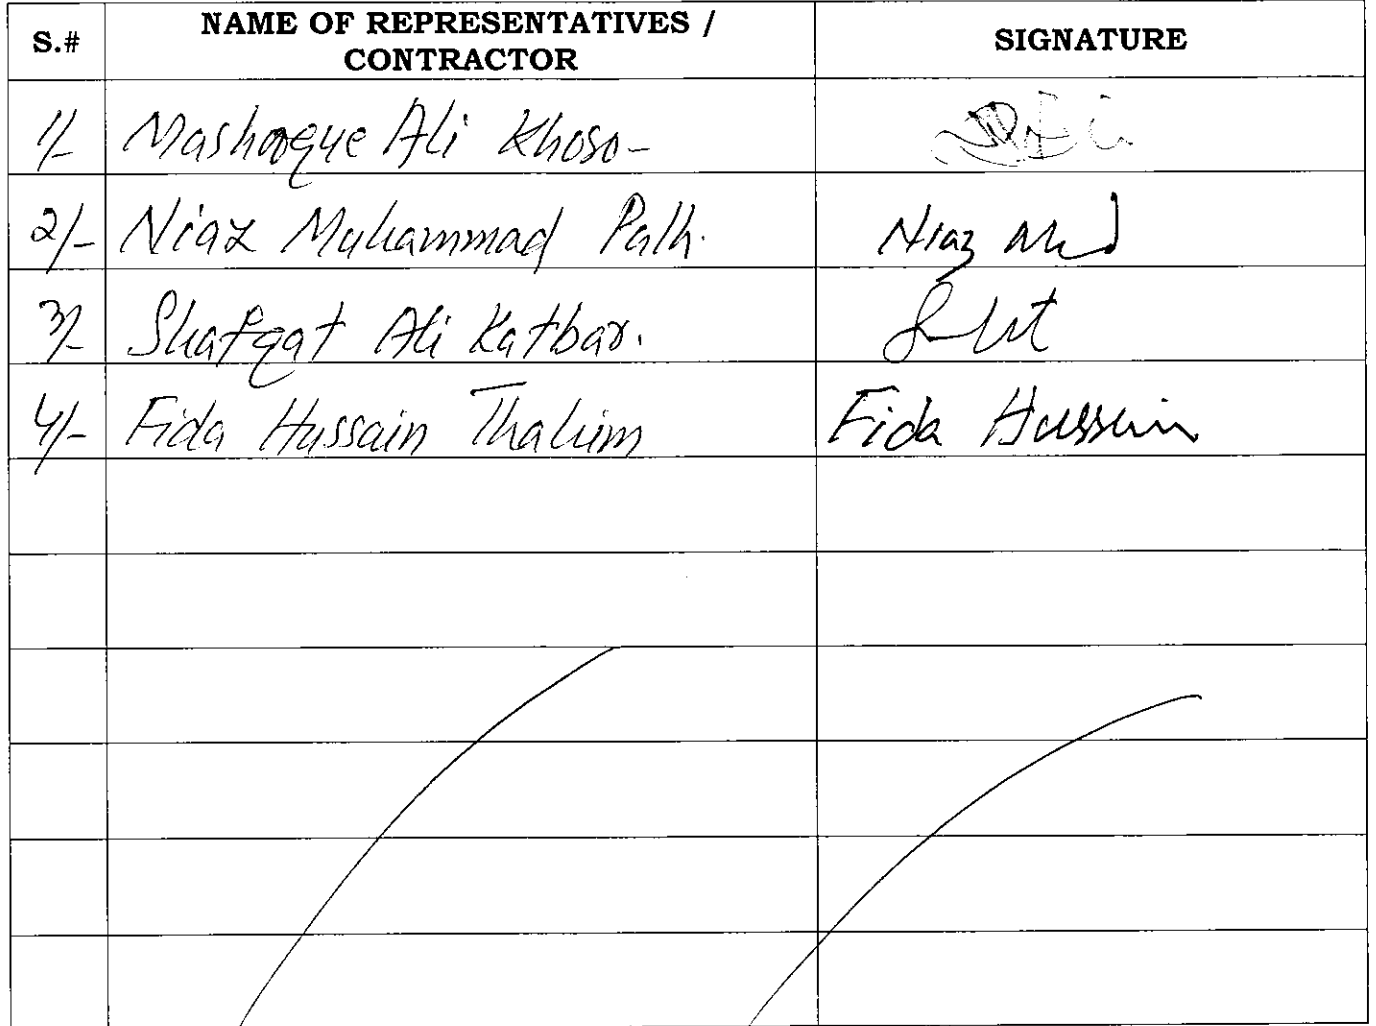 S.# NAME OF REPRESENTATIVES / CONTRACTOR SIGNATURE
1/- Mashooque Ali Khoso-
2/- Niaz Muhammad Palh. Niaz Mhd
3/- Shafqat Ali Katbar.
4/- Fida Hussain Thahim Fida Hussain